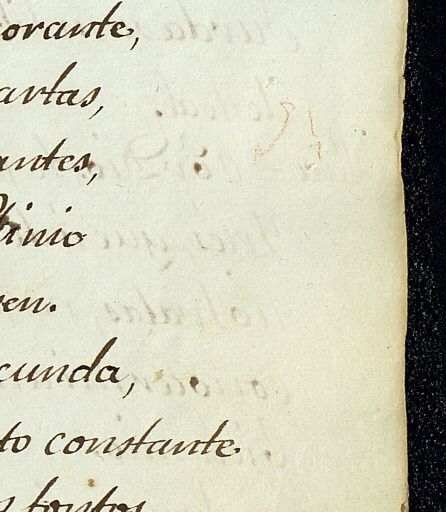 orante,
artas,
antes,
inio
en.
cunda,
to constante.
s tontos